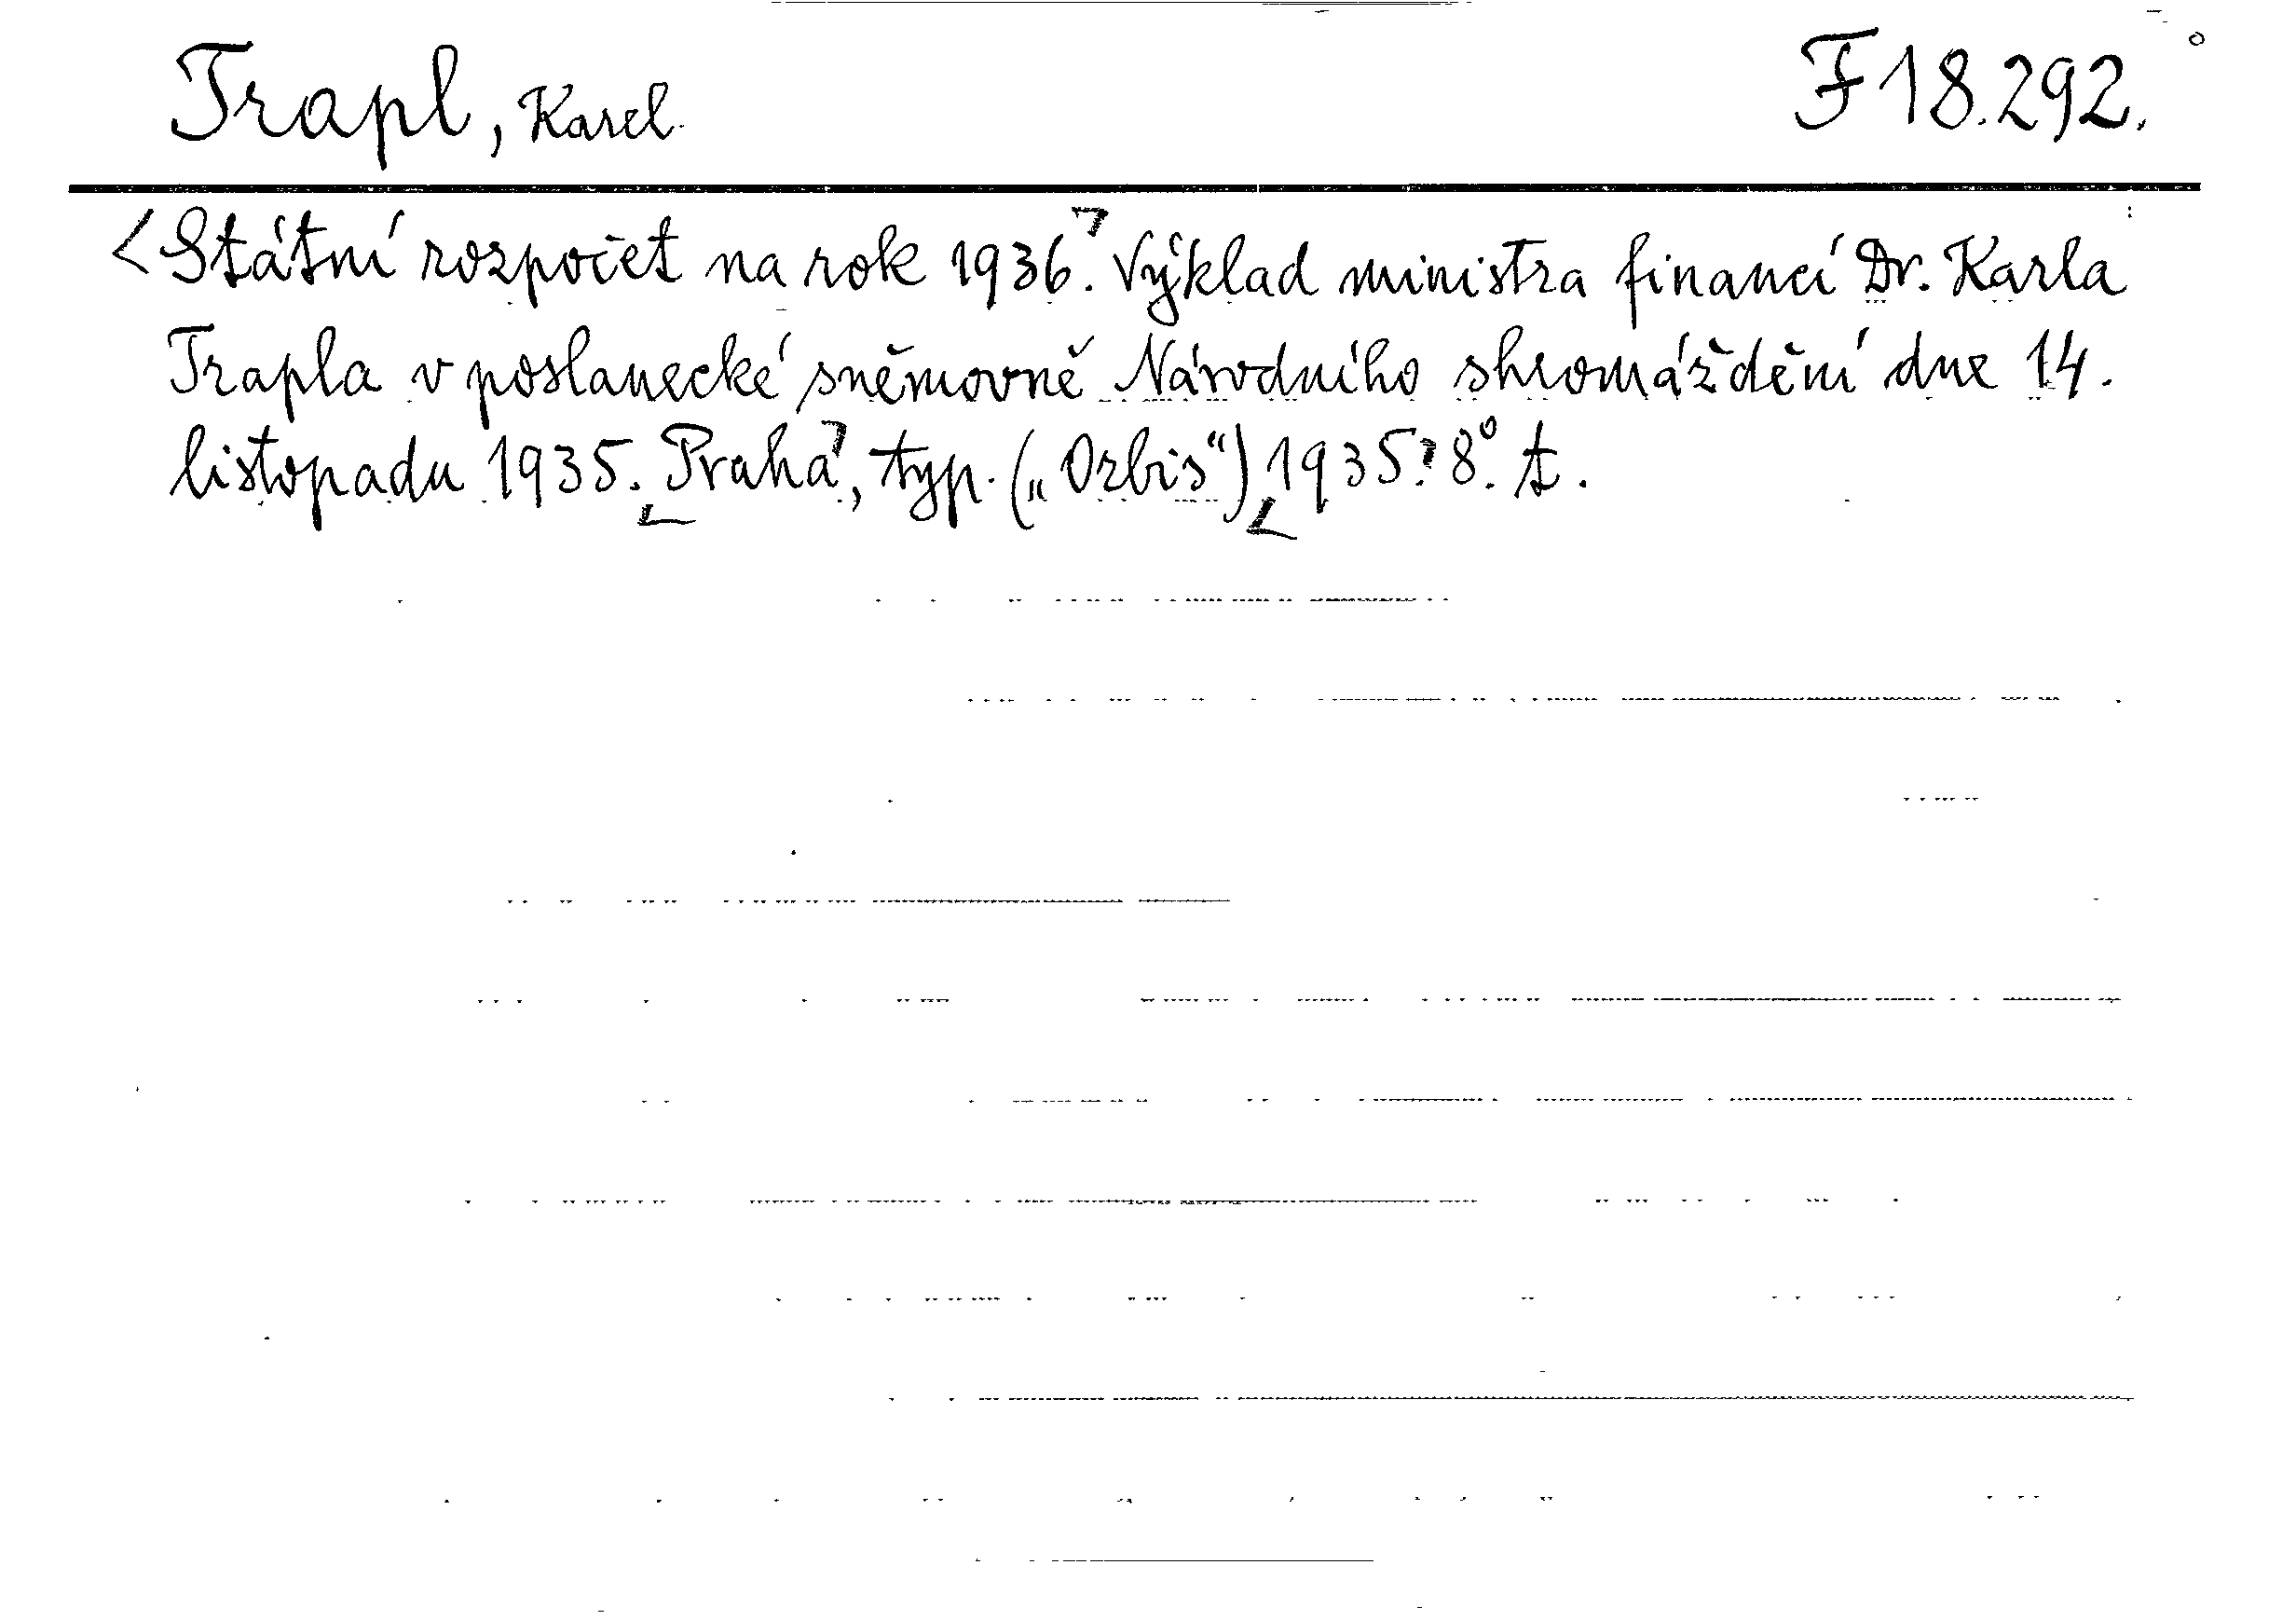 Trapl, Karel. F 18.292.
<Státní rozpočet na rok 1936.⌝ Výklad ministra financí Dr. Karla
Trapla v poslanecké sněmovně Národního shromáždění dne 14.
listopadu 1935. ⌞Praha⌝, typ. („Orbis“) ⌞1935.⌝ 8°. t.